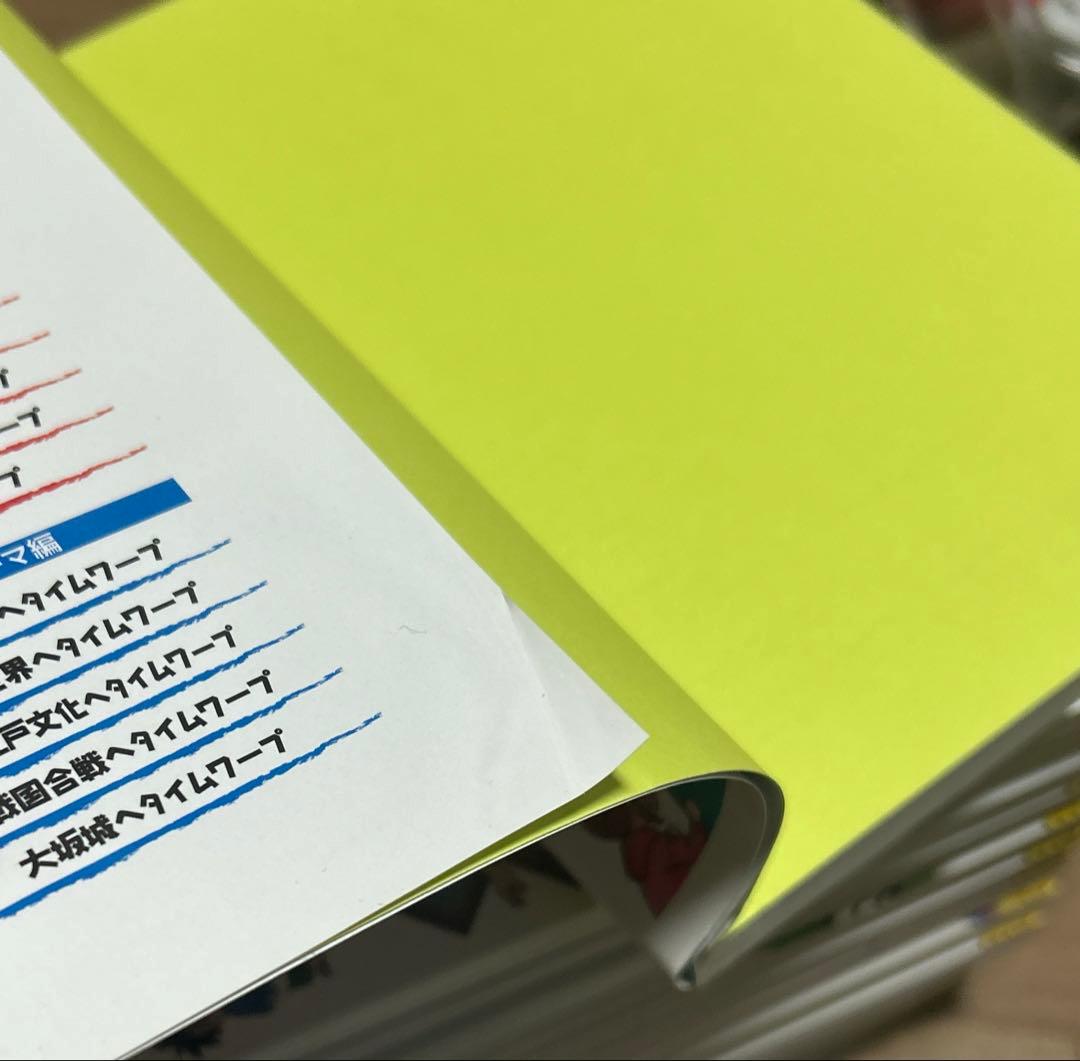 プ
ープ
プ
マ編
へタイムワープ
界へタイムワープ
戸文化へタイムワープ
戦国合戦へタイムワープ
大坂城へタイムワープ